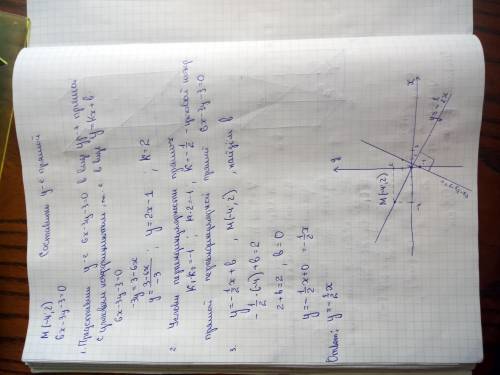 M(-4;2) Составить ур-е прямой
6x-3y-3=0
1. Представим ур-е 6x-3y-3=0 в виде ур-я прямой
с угловым коэффициентом т-е в виде y=kx+b
6x-3y-3=0
-3y=3-6x
y=3-6x/-3 ; y=2x-1 ; k=2
2. Условие перпендикулярности прямых
k₁·k₂=-1 ; k·2=-1 ; k=-1/2 - угловой коэф
прямой перпендикулярной прямой 6x-3y-3=0
3. y=-1/2x+b , M(-4;2) , найдём b
-1/2·(-4)+b=2
2+b=2 , b=0
y=-1/2x+0 =-1/2x
Ответ: y=-1/2x
y
x
M(-4;2)